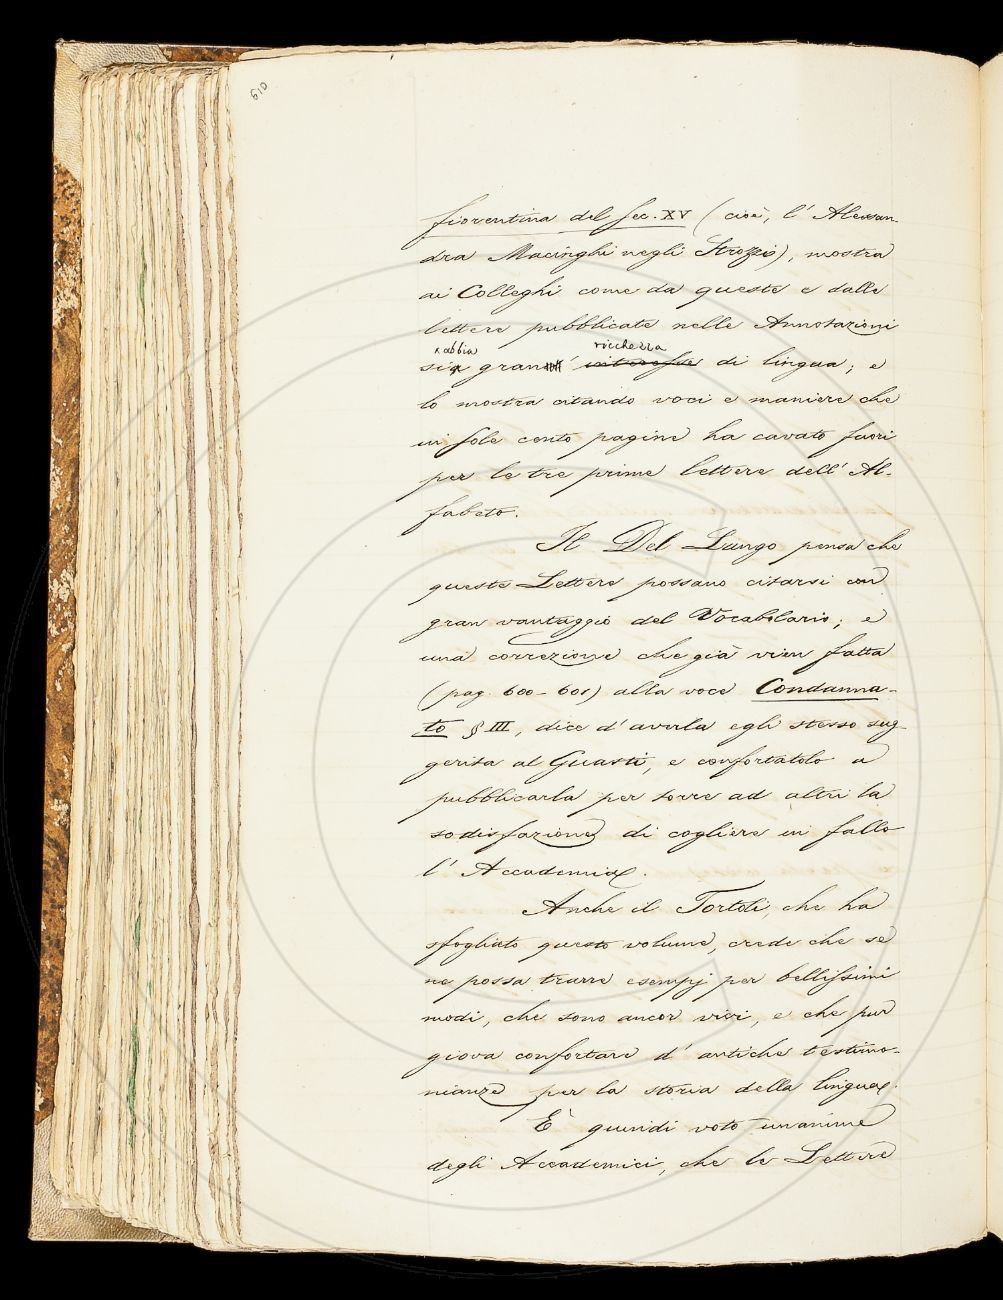 610
fiorentina del sec. XV (cioè, l'Alessan-
dra Macinghi negli Strozzi), mostra
ai Colleghi come da queste e dalle
lettere pubblicate nelle Annotazioni
abbia ricchezza
sia gran interesse di lingua; e
lo mostra citando voci e maniere che
in sole cento pagine ha cavato fuori
per le tre prime lettere dell'Al-
fabeto.
Il Del Lungo pensa che
queste Lettere possano citarsi con
gran vantaggio del Vocabolario; e
una correzione che già vien fatta
(pag. 600-601) alla voce Condanna-
to § III, dice d'averla egli stesso sug-
gerita al Guasti, e confortatolo a
pubblicarla per torre ad altri la
sodisfazione di cogliere in fallo
l'Accademia.
Anche il Tortoli, che ha
sfogliato questo volume, crede che se
ne possa trarre esempj per bellissimi
modi, che sono ancor vivi, e che pur
giova confortare d'antiche testimo-
nianze per la storia della lingua.
È quindi voto unanime
degli Accademici, che le Lettere